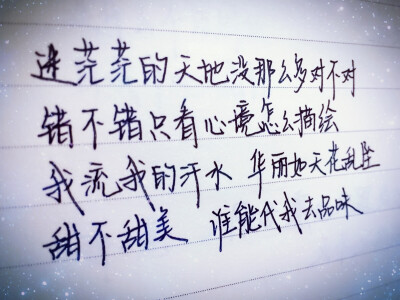 这茫茫的天地没那么多对不对
错不错只看心境怎么描绘
我流我的汗水 华丽如天花乱坠
甜不甜美 谁能代我去品味